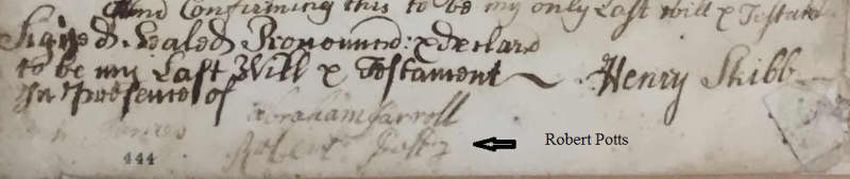 And Confirming this to be my only Last will & Testam
Signed. Sealed Pronounced: & declard
to be my Last Will & Testament Henry Skibb
In Presence of
Abraham Jarroll
James
Robert Potts Robert Potts
444